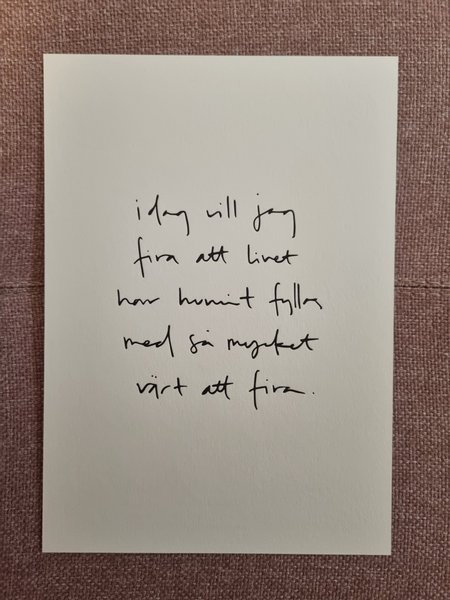 idag vill jag
fira att livet
har hunnit fyllas
med så mycket
värt att fira.